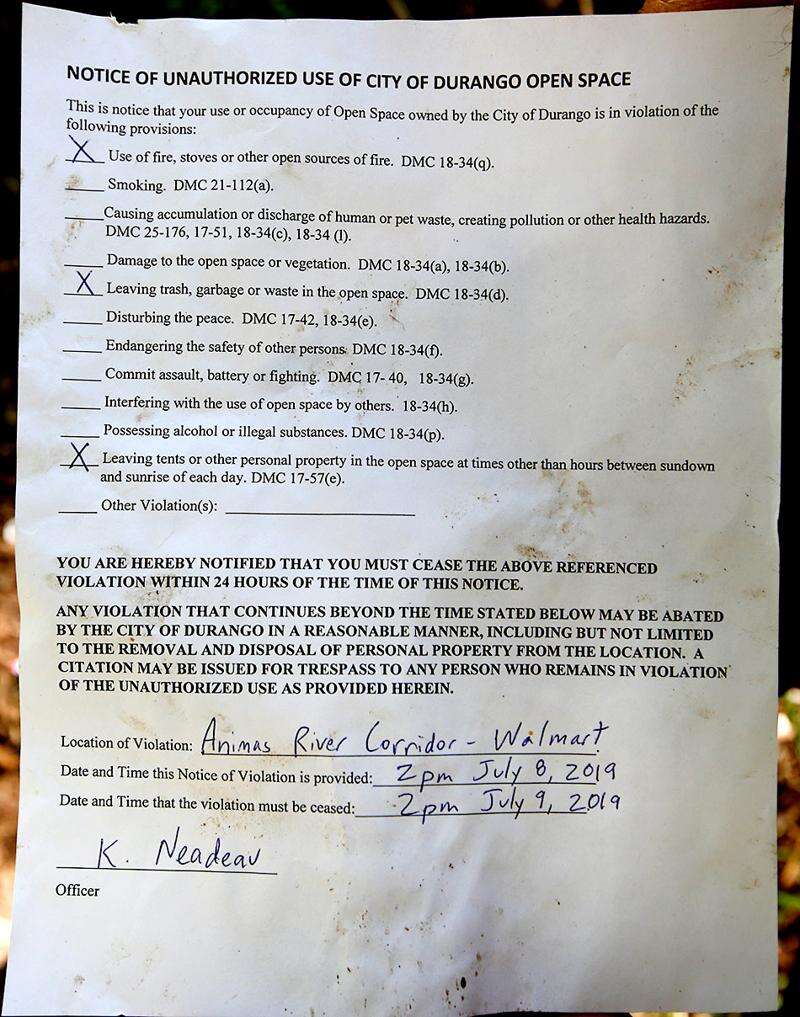 NOTICE OF UNAUTHORIZED USE OF CITY OF DURANGO OPEN SPACE
This is notice that your use or occupancy of Open Space owned by the City of Durango is in violation of the
following provisions:
X Use of fire, stoves or other open sources of fire. DMC 18-34(q).
____ Smoking. DMC 21-112(a).
____Causing accumulation or discharge of human or pet waste, creating pollution or other health hazards.
DMC 25-176, 17-51, 18-34(c), 18-34 (l).
____ Damage to the open space or vegetation. DMC 18-34(a), 18-34(b).
X Leaving trash, garbage or waste in the open space. DMC 18-34(d).
____ Disturbing the peace. DMC 17-42, 18-34(e).
____ Endangering the safety of other persons. DMC 18-34(f).
____ Commit assault, battery or fighting. DMC 17- 40, 18-34(g).
____ Interfering with the use of open space by others. 18-34(h).
____ Possessing alcohol or illegal substances. DMC 18-34(p).
X Leaving tents or other personal property in the open space at times other than hours between sundown
and sunrise of each day. DMC 17-57(e).
____ Other Violation(s): ____________________
YOU ARE HEREBY NOTIFIED THAT YOU MUST CEASE THE ABOVE REFERENCED
VIOLATION WITHIN 24 HOURS OF THE TIME OF THIS NOTICE.
ANY VIOLATION THAT CONTINUES BEYOND THE TIME STATED BELOW MAY BE ABATED
BY THE CITY OF DURANGO IN A REASONABLE MANNER, INCLUDING BUT NOT LIMITED
TO THE REMOVAL AND DISPOSAL OF PERSONAL PROPERTY FROM THE LOCATION. A
CITATION MAY BE ISSUED FOR TRESPASS TO ANY PERSON WHO REMAINS IN VIOLATION
OF THE UNAUTHORIZED USE AS PROVIDED HEREIN.
Location of Violation: Animas River Corridor - Walmart
Date and Time this Notice of Violation is provided: 2pm July 8, 2019
Date and Time that the violation must be ceased: 2pm July 9, 2019
K. Neadeau
Officer